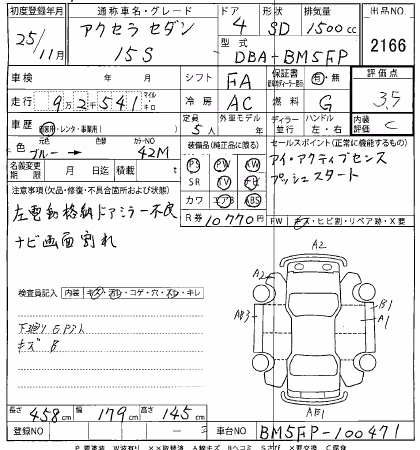 初度登録年月 通称車名・グレード ドア 形状 排気量 出品NO
25年/11月 アクセラ セダン 4 SD 1500cc
15S 型式 DBA-BM5FP 2166
車検 年 月 シフト FA 保証書 有・無 評価点
走行 9万2千541 マイル キロ 冷房 AC 燃料 G 3.5
車歴 自家用・レンタ・事業用( ) 定員 5人 外車モデル 年 ディーラー 並行 ハンドル 左・右 内装評価 C
色 元色 ブルー → 色 カラーNO 42M
装備品(純正品に限る) セールスポイント(正常に機能するもの)
名義変更期限 月 日 積載 t
PS PW AW アイ・アクティブセンス
SR TV ナビ プッシュスタート
カワ エアB ABS
R券 10770円
FW キズ・ヒビ割・リペア跡・X要
注意事項(欠品・修復・不具合箇所および状態)
左電動格納ドアミラー不良
ナビ画面割れ
検査員記入 内装 キズ・汚れ・コゲ・穴・スレ・キレ
下廻り
キズ B
A2
A2
B1
A1
AB3
AB1
長さ 458cm 幅 179cm 高さ 145cm
登録NO — 車台NO BM5FP-100471
P要塗装 W波有り XX取替済 A線キズ Bヘコミ Sサビ X要交換 C腐食